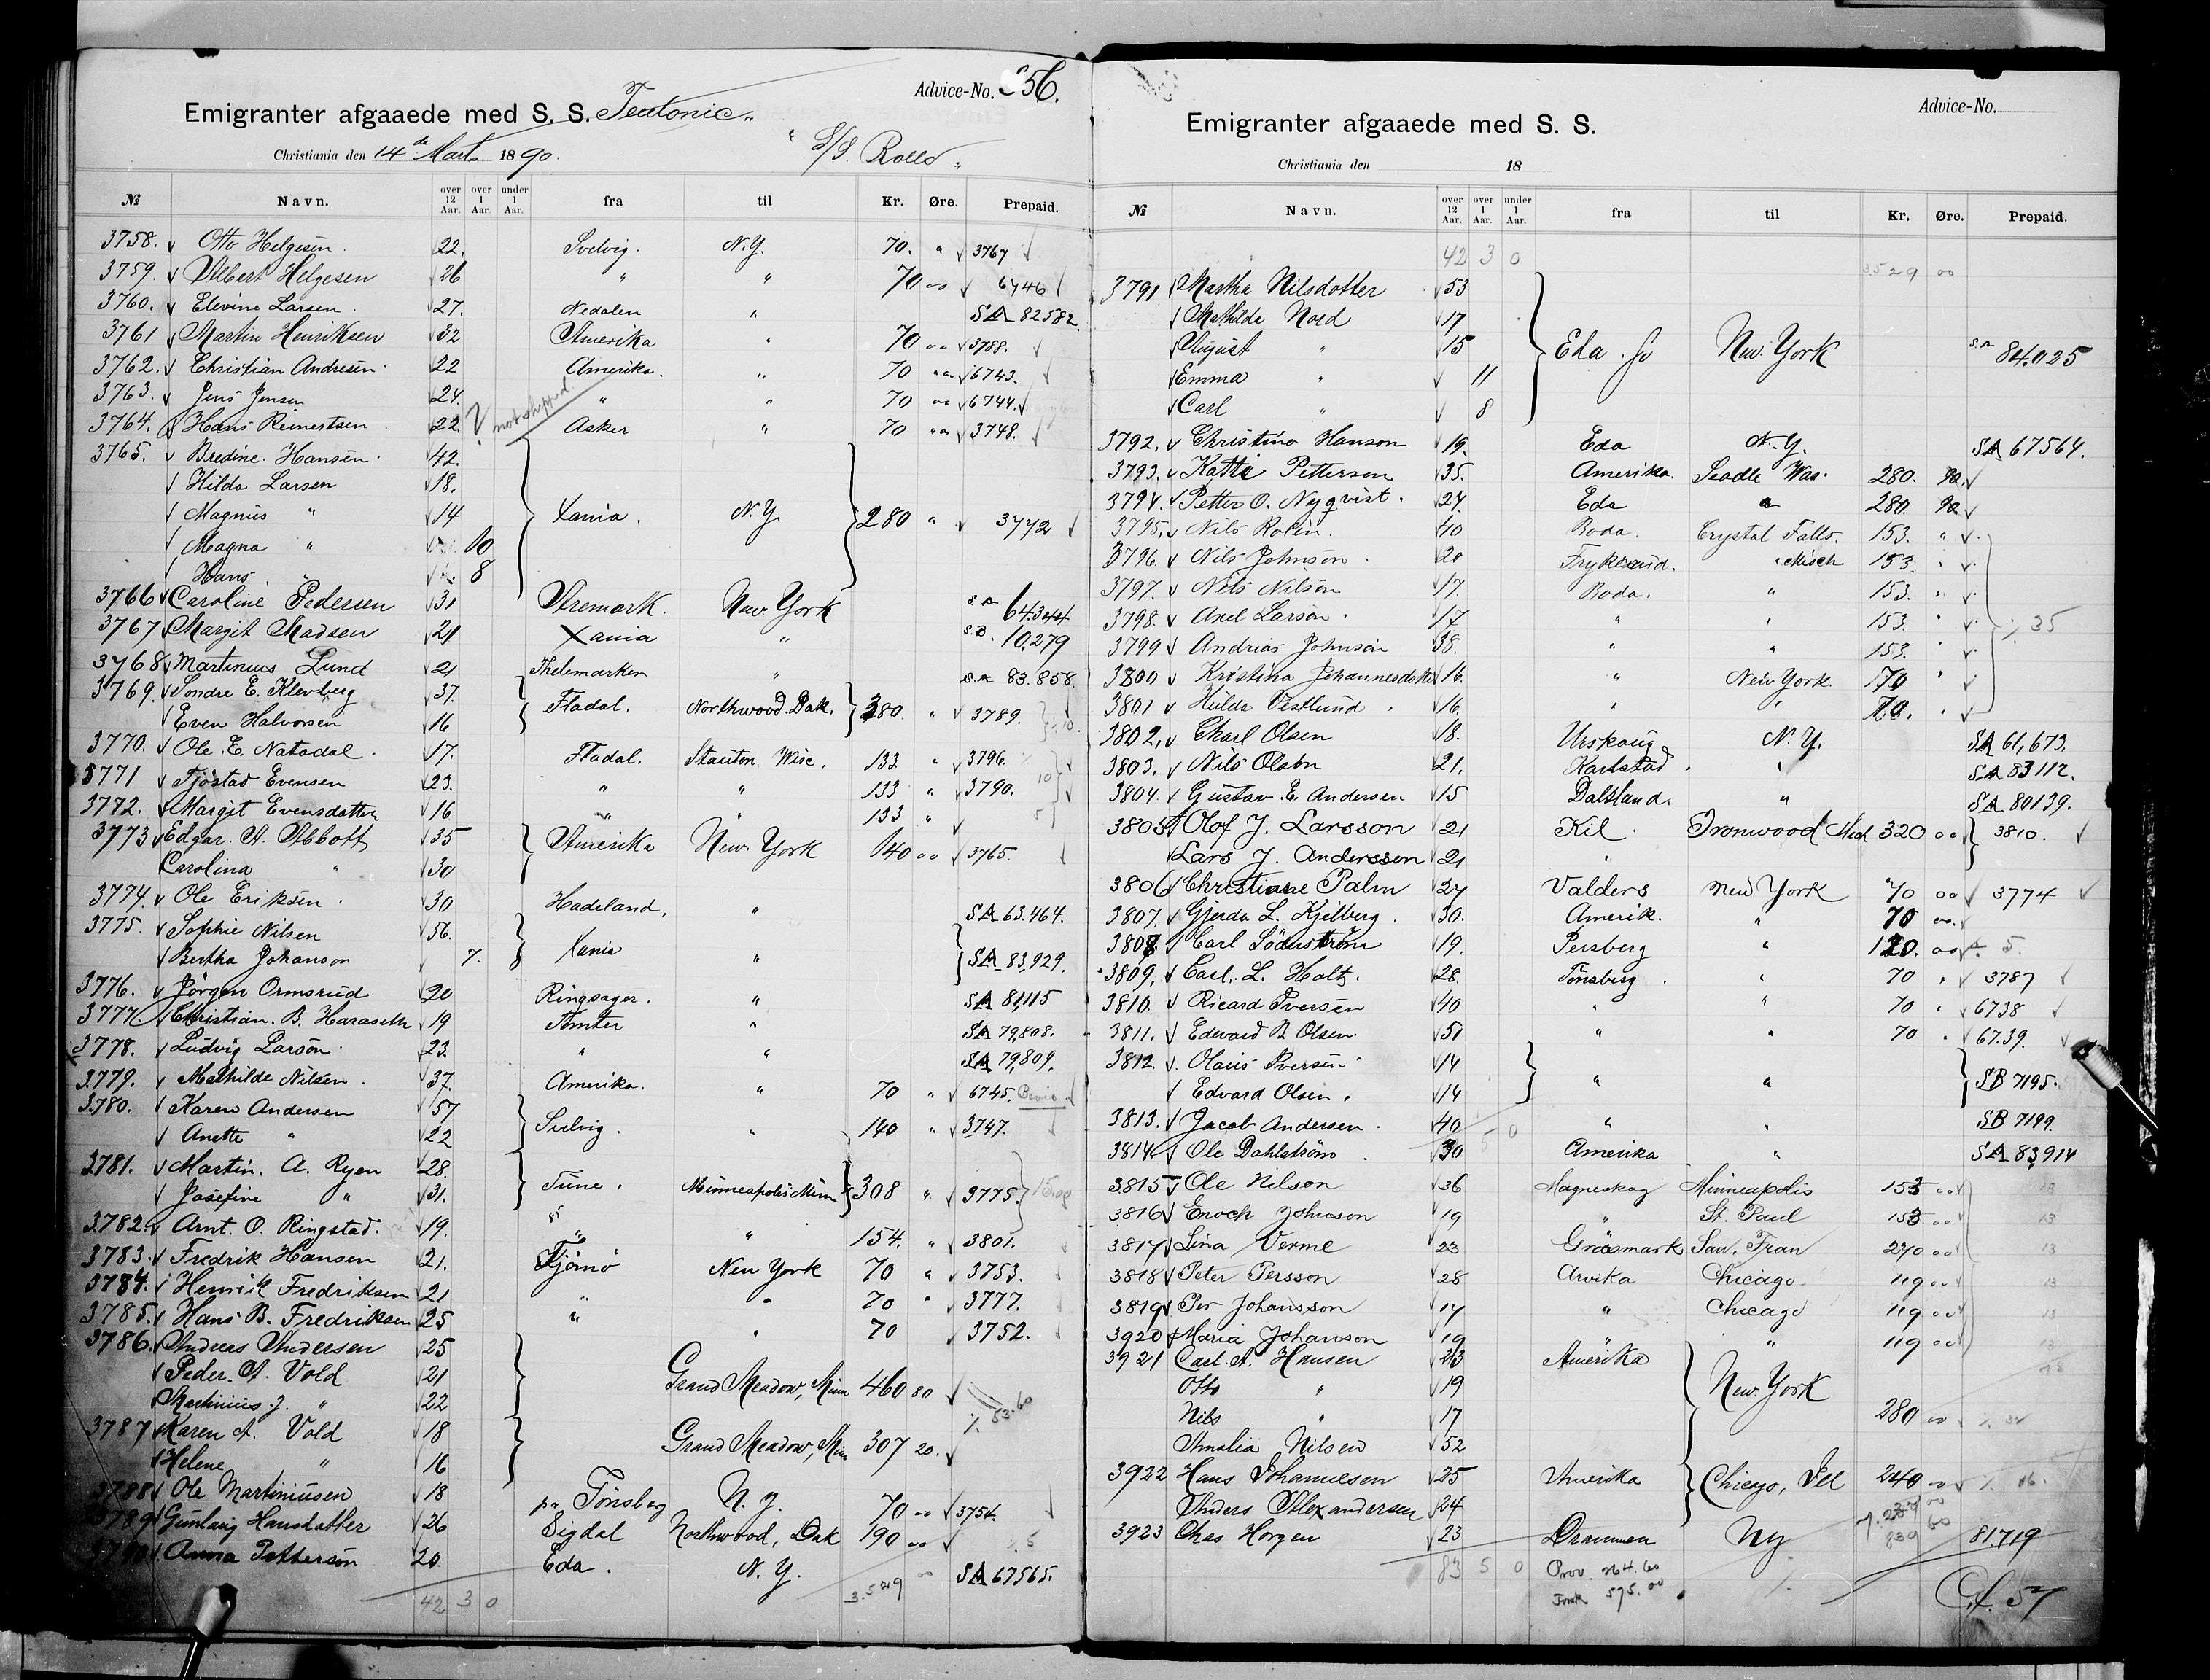 Advice-No. 256.
Emigranter afgaaede med S. S. Teutonic "
Christiania den 14de Marts 1890. " S/S. Rollo "
№ Navn. over 12 Aar. over 1 Aar. under 1 Aar. fra til Kr. Øre. Prepaid.
3758. Otto Helgesen. 22. Svelvig. N.Y. 70. " 3767
3759. Albert Helgesen 26 " " 70 00 6746
3760. Elevine Larsen. 27. Nedalen " SA 82582
3761 Martin Henriksen 32 Amerika " 70 00 3788.
3762. Christian Andresen. 22 Amerika. " 70 " 6743.
3763. Jens Jensen 24. " " 70 00 6744.
3764. Hans Reinertsen 22. ? not shipped Asker " 70 " 3748.
3765. Bredine Hansen. 42.
Hilda Larsen 18.
Magnus " 14 Xania. N.Y. 280 " 3772
Magna " 10
Hans " 8
3766 Caroline Pedersen 31 Aremark. New York SA 64344
3767 Margit Madsen 21 Xania " S.B. 10,279
3768 Martinius Lund 21 Thelemarken " SA 83.858.
3769. Sondre E. Klevberg 37.
Even Halvorsen 16 Fladal. Northwood Dak. 380. " 3789.
3770. Ole E. Natadal. 17. Fladal. Stauton Wisc. 133. " 3796.
3771 Tjöstad Evensen 23. " " 133 " 3790. 10
3772. Margit Evensdatter 16 " 133 " 5
3773 Edgar. A. Abbott 35 Amerika New York 140 00 3765.
Carolina " 30
3774. Ole Eriksen. 30 Hadeland. " SA 63.464.
3775. Sophie Nilsen 56.
Bertha Johanson 7. Xania " SA 83,929.
3776. Jörgen Ormsrud 20 Ringsager. " SA 81,115
3777. Christian. B. Haraseth 19 Amter " SA 79,808.
3778. Ludvig Larson 23. " " SA 79,809.
3779. Mathilde Nilsen. 37. Amerika. " 70 " 6745.
3780. Karen Andersen 57
Anette " 22 Svelvig. " 140 " 3747.
3781. Martin. A. Ryen 28.
Josefine " 31. Tune. Minneapolis Minn 308 " 3775.
3782. Arnt. O. Ringstad. 19. " " 154. " 3801.
3783. Fredrik Hansen 21. Tjömö New York 70 " 3753.
3784. Henrik Fredriksen 21 " " 70 " 3777.
3785. Hans B. Fredriksen 25 " " 70 3752.
3786. Andreas Andersen 25
Peder. A. Vold 21 Grand Meadow, Minn 460 80
Martinius J. " 22 53.60
3787 Karen A. Vold 18 Grand Meadow, Minn 307 20.
Helene " 16
3788 Ole Martiniusen 18 pr Tönsberg N.Y. 70 00 3754.
3789 Gunlaug Hansdatter 26 Sigdal Northwood, Dak 190 00 5
3790 Anna Pettersen 20. Eda. N.Y. SA 67565.
42 3 0 3.529 00
Advice-No.
Emigranter afgaaede med S. S.
Christiania den 18
№ Navn. over 12 Aar. over 1 Aar. under 1 Aar. fra til Kr. Øre. Prepaid.
42 3 0 3529 00
3791 Martha Nilsdotter 53
Mathilda Nord 17
August " 15 Eda. New York SA 84025
Emma " 11
Carl " 8
3792. Christina Hanson 19. Eda N.Y. SA 67564.
3793. Kattie Petterson 35. Amerika. Seadle Was. 280. 90.
3794. Petter O. Nyqvist. 24. Eda " 280. 90
3795. Nils Rolin. 40 Boda. Crystal Falls. 153. "
3796. Nils Johnson. 20 Frykerud. " Misch 153. "
3797. Nils Nilson 17. Boda. " 153. "
3798. Axel Larson. 17 " " 153. " 35
3799 Andrias Johnson 38. " " 153. "
3800 Kristina Johannesdotter 16. " New York. 70 "
3801 Hulda Vestlund. 16. " " 70. "
3802. Charl Olsen 18. Urskoug N.Y. SA 61,673.
3803. Nils Olson 21. Karlstad. " SA 83112.
3804. Gustav. E. Andersen 15 Dalsland. " SA 80139.
3805 Olof J. Larsson 21 Kil. Ironwood Mich 320 00 3810.
Lars J. Andersson 21 "
3806 Christiane Palm 27 Valders New York 70 00 3774
3807. Gjerda L. Kjelberg. 30. Amerik. " 70 00.
3808 Carl Söderström 19. Persberg " 120. 00 5.
3809. Carl. L. Holtz. 28. Tönsberg. " 70 " 3787
3810. Ricard Iversen 40 " " 70 " 6738
3811. Edvard N Olsen 51 " " 70 " 6739.
3812. Olaus Iversen 14
Edvard Olsen. 14 " " SB 7195.
3813. Jacob Andersen. 40 " " SB 7199.
3814 Ole Dahlström. 30 Amerika " SA 83,914
3815 Ole Nilson 36 Magneskog Minneapolis 153 00 13
3816 Enoch Johnson 19 " St. Paul 153 00 13
3817 Lina Verme 23 Gräsmark San. Fran 270 00 13
3818 Peter Persson 28 Arvika Chicago 119 00 13
3819 Per Johansson 17 " Chicago 119 00 13
3920 Maria Johanson 19 " " 119 00 13
3921 Carl. A. Hansen 23 Amerika
Otto " 19 New York
Nils " 17 280 00
Amalia Nilsen 52
3922 Hans Johannesen 25 Amerika Chicago, Ill 240 00 16.
Anders Alexandersen 24
3923 Chas Horgen 23 Drammen Ny 81.719
83 5 0 Prov. 264.60
575.00
Cf. 57